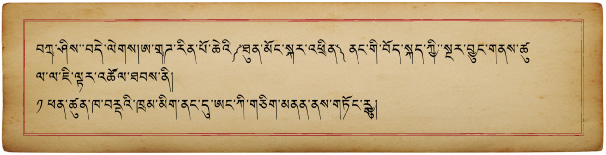 བཀྲ་ཤིས་བདེ་ལེགས།ཨ་གཤ་རིན་པོ་ཆེའི་༼ཐུན་མོང་སྐར་འཕྲིན༽ ནང་གི་བོད་སྐད་ཀྱི་སྔར་བྱུང་གནས་ཚུ
ལ་ལ་ཇི་ལྟར་འཚོལ་ཐབས་ནི།
༡ ཕན་ཚུན་ཁ་བརྡའི་ཁྲམ་མིག་ནང་དུ་ཨང་ཀི་གཅིག་མནན་ནས་གཏོང་རྒྱུ།